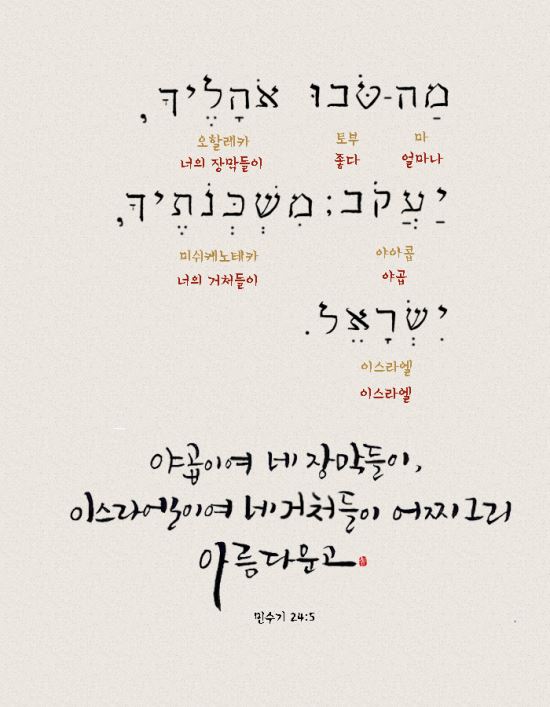 מַה-טֹּבוּ אֹהָלֶיךָ,
마 토부 오할레카
얼마나 좋다 너의 장막들이
יַעֲקֹב; מִשְׁכְּנֹתֶיךָ,
야아콥 미쉬케노테카
야곱 너의 거처들이
יִשְׂרָאֵל.
이스라엘
이스라엘
야곱이여 네 장막들이,
이스라엘이여 네 거처들이 어찌 그리
아름다운고
민수기 24:5